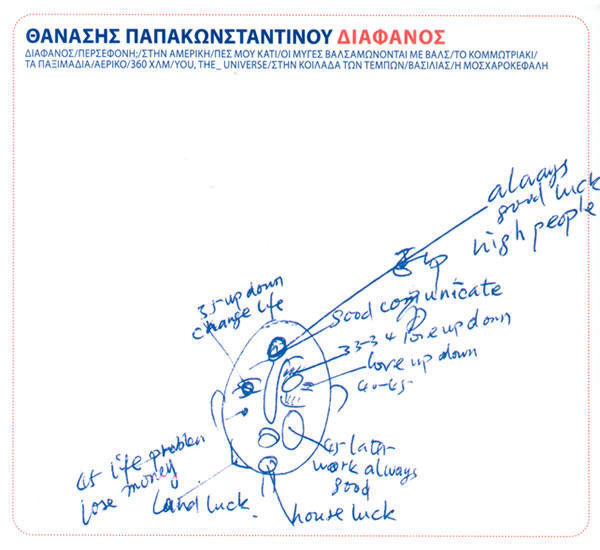 ΘΑΝΑΣΗΣ ΠΑΠΑΚΩΝΣΤΑΝΤΙΝΟΥ ΔΙΑΦΑΝΟΣ
ΔΙΑΦΑΝΟΣ/ΠΕΡΣΕΦΟΝΗ;/ΣΤΗΝ ΑΜΕΡΙΚΗ/ΠΕΣ ΜΟΥ ΚΑΤΙ/ΟΙ ΜΥΓΕΣ ΒΑΛΣΑΜΩΝΟΝΤΑΙ ΜΕ ΒΑΛΣ/ΤΟ ΚΟΜΜΩΤΡΙΑΚΙ/
ΤΑ ΠΑΞΙΜΑΔΙΑ/ΑΕΡΙΚΟ/360 ΧΛΜ/YOU, THE_ UNIVERSE/ΣΤΗΝ ΚΟΙΛΑΔΑ ΤΩΝ ΤΕΜΠΩΝ/ΒΑΣΙΛΙΑΣ/Η ΜΟΣΧΑΡΟΚΕΦΑΛΗ
always
good luck
high people
up
35-up down
change life
good comunicate
33-34 love up down
love up down
40-45
45 life problem
lose money
45-later
work always
good
land luck.
house luck